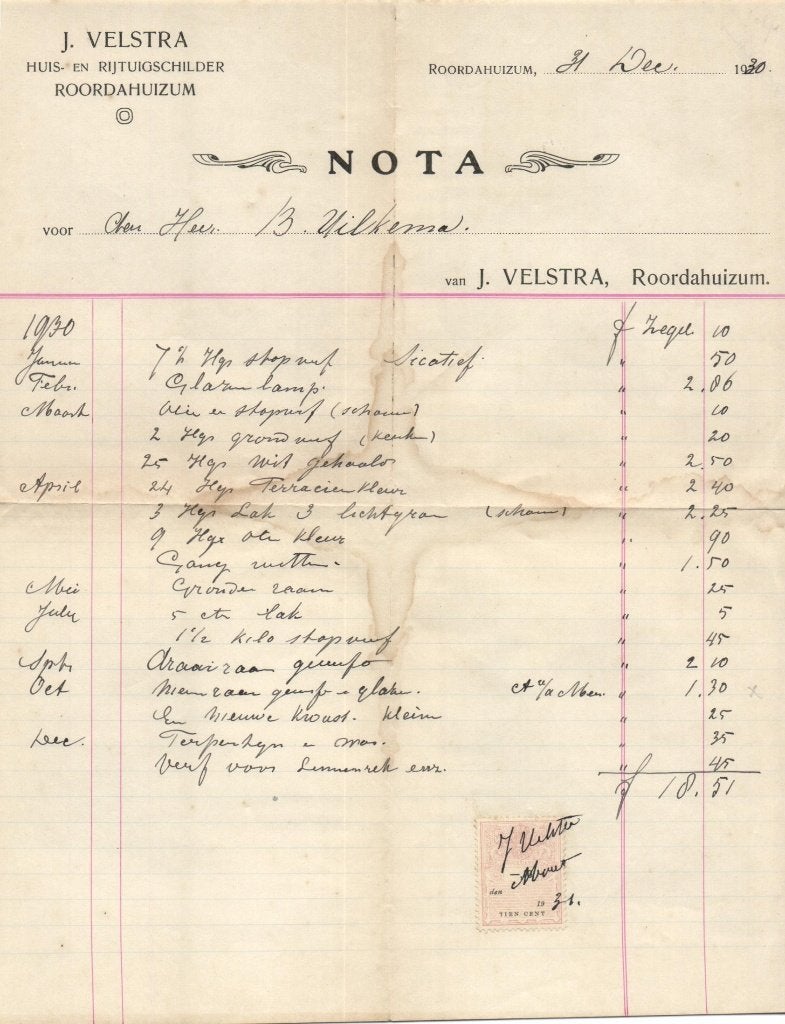 J. VELSTRA
HUIS- EN RIJTUIGSCHILDER
ROORDAHUIZUM
ROORDAHUIZUM, 31 Dec. 1930.
NOTA
voor den Heer B. Uilkema.
van J. VELSTRA, Roordahuizum.
1930 ƒ Zegel 10
Januari 7½ Hgr stopverf Sicatief. " 50
Febr. Glazen lamp. " 2.86
Maart Olie en stopverf " 10
2 Hgr grondverf (keuken) " 20
25 Hgr wit gehaald " 2.50
April 24 Hgr kleur " 2 40
3 Hgr Lak 3 lichtgroen " 2.25
9 Hgr kleur " 90
Gang witten. " 1.50
Mei Gronden raam " 25
July 5 lak " 5
1½ kilo stopverf " 45
Spt. draairaam geverfd " 2 10
Oct raam geverfd " 1.30 x
En nieuwe kwast. klein " 25
Dec. Terpentyn e was. " 35
Verf voor enz. " 45
ƒ 18.51
J Velstra
den Maart
19 31.
TIEN CENT